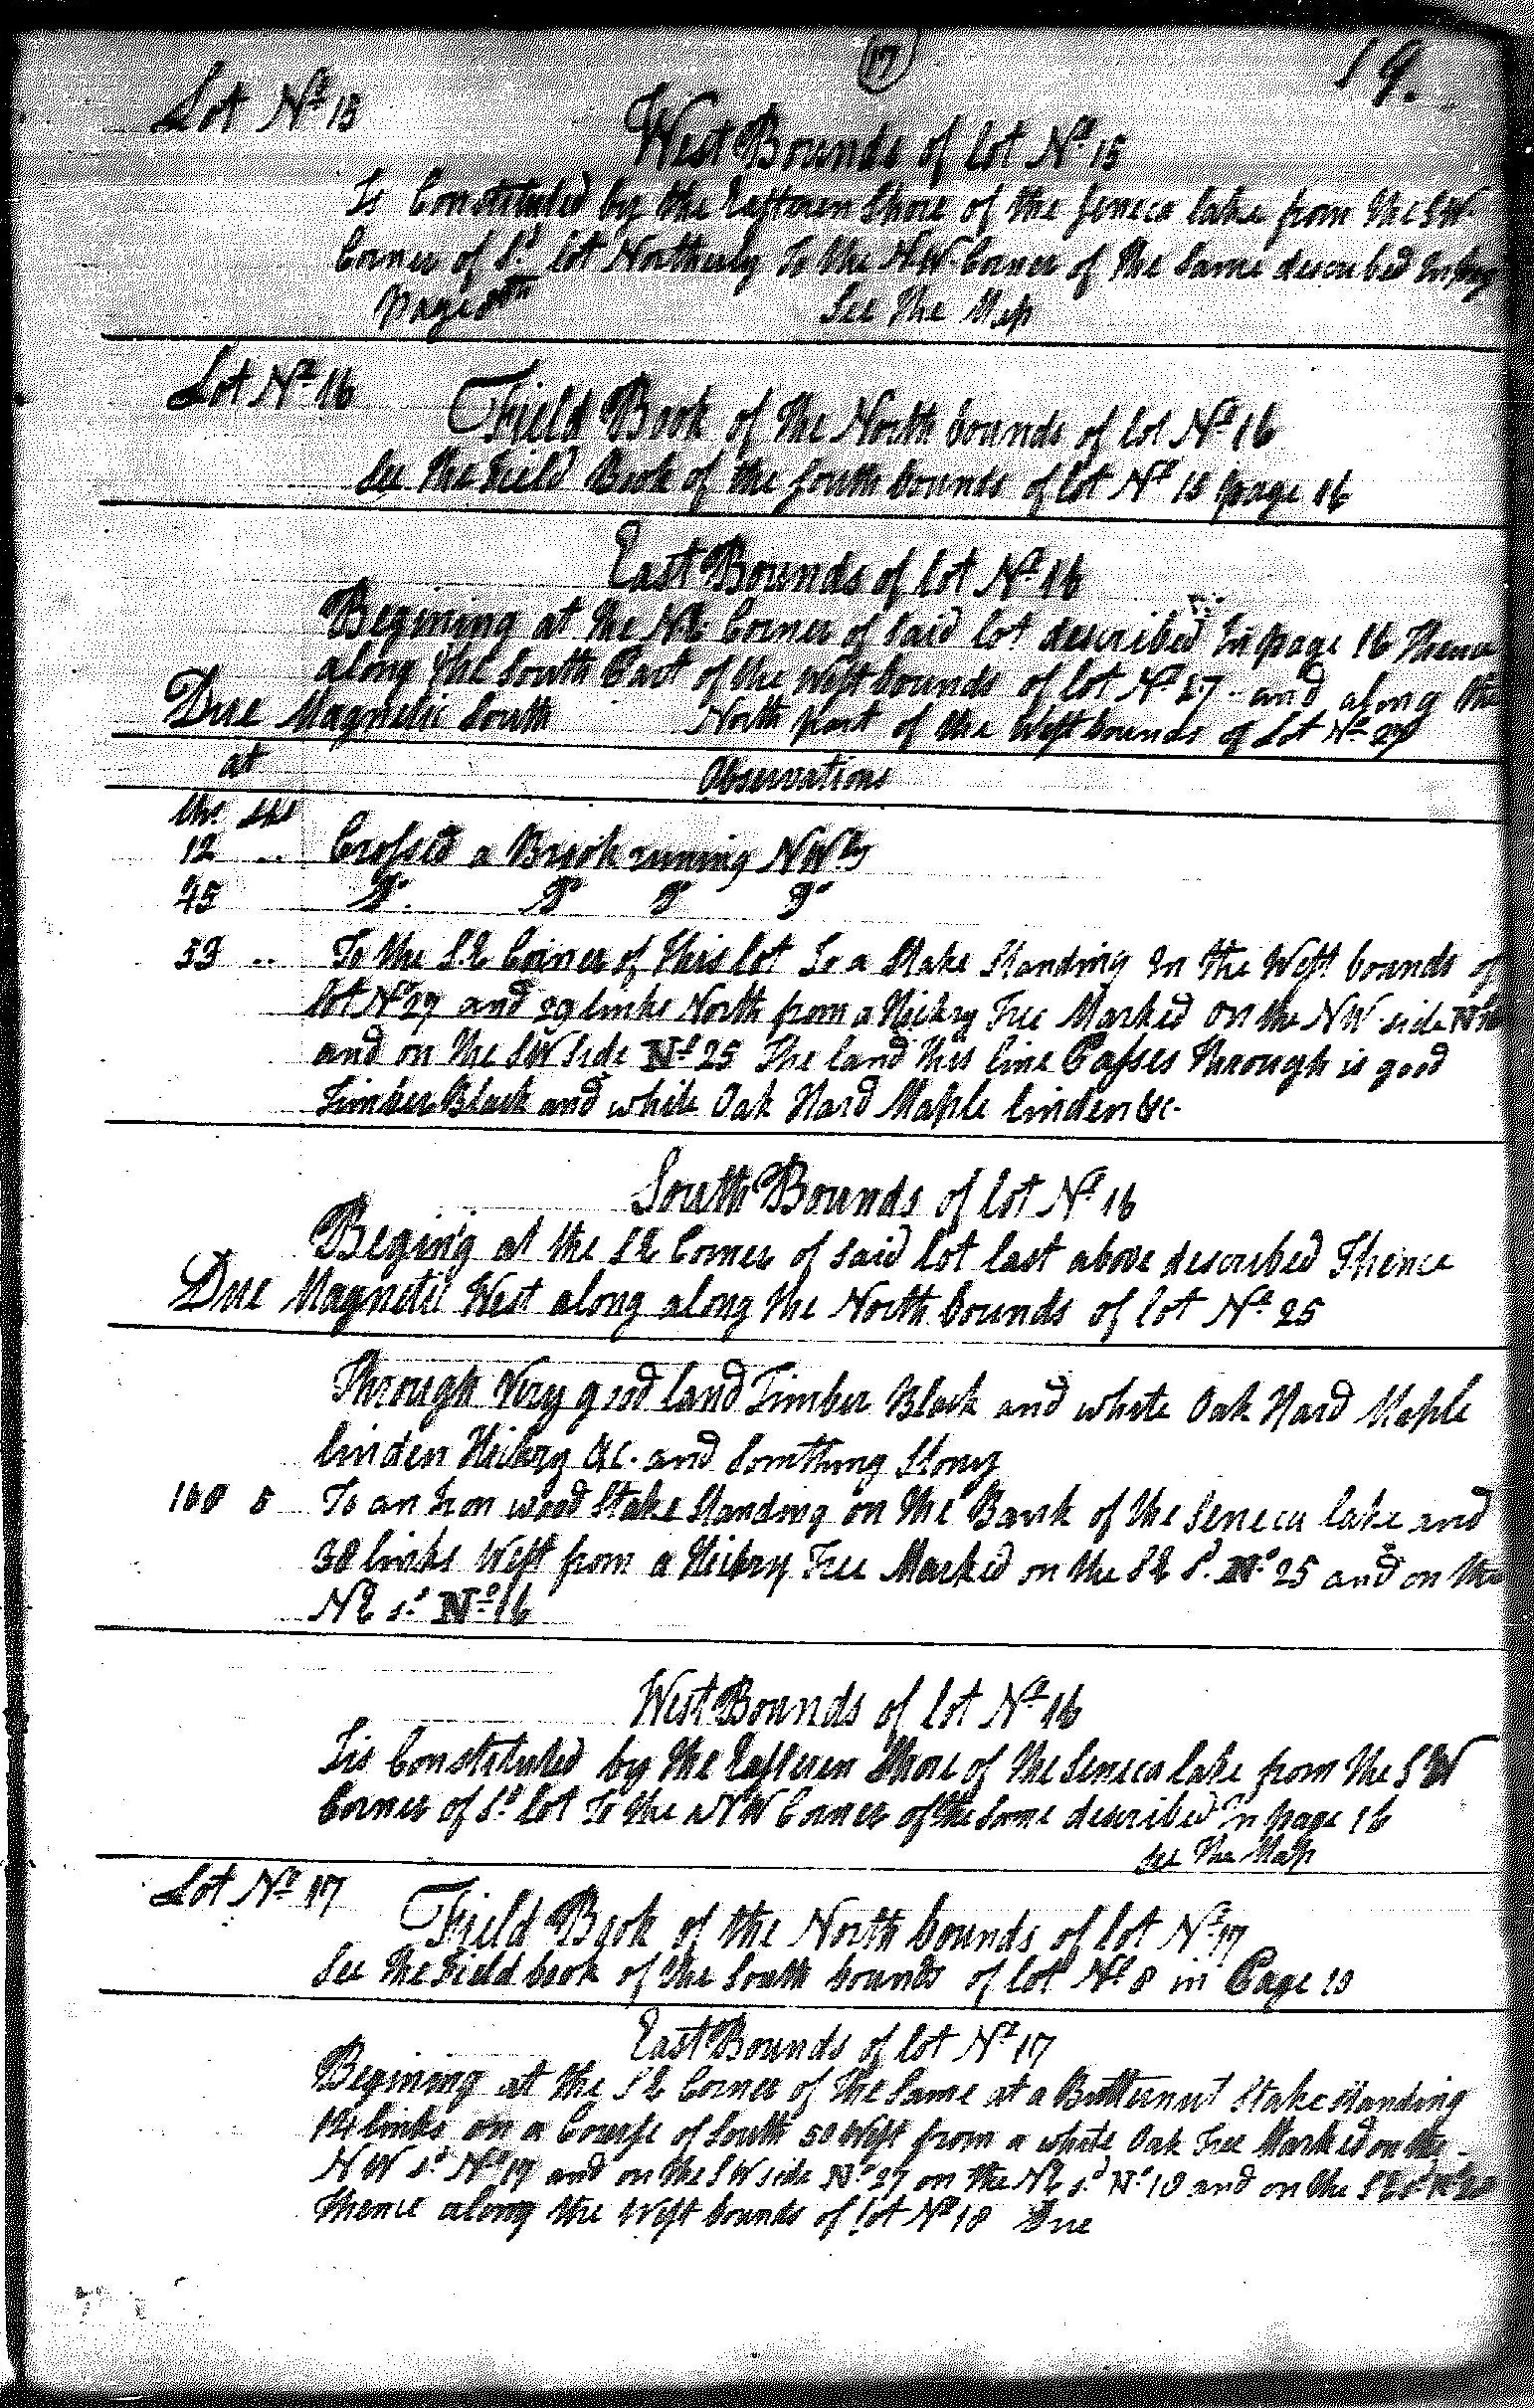 17
19.
Lot No 15
West Bounds of lot No 15
Is Constituted by the Eastern Shore of the Seneca lake from the SW
Corner of Sd lot Northerly To the NW Corner of the Same described In
page See The Map
Lot No 16
Field Book of the North bounds of lot No 16
See The Field Book of the South bounds of lot No 15 page 16
East Bounds of lot No 16
Begining at the NE Corner of said lot described In page 16 Thence
along the South Part of the West bounds of lot No 17 and along the
Due Magnetic South North part of the West bounds of Lot No 27
at Observations
chs lks
12 .. Crossed a Brook runing NWly
45 Do. Do Do Do
53 .. To the SE Corner of This lot To a Stake Standing In the West bounds of
lot No 27 and 29 links North from a Hickry Tree Marked on the NW side No 16
and on the SW Side No 25 The land this line Passes Through is good
Timber Black and white Oak Hard Maple linden &c.
South Bounds of lot No 16
Begin'g at the SE Corner of said lot last above described Thence
Due Magnetic West along along the North bounds of lot No 25
Through Very good land Timber Black and white Oak Hard Maple
linden Hickry &c. and Somthing Stony
100 8 To an Iron wood Stake Standing on the Bank of the Seneca lake and
30 links West from a Hickry Tree Marked on the SE Sd. No 25 and on the
NE sd No 16
West Bounds of lot No 16
Is Constituted by the Eastern Shore of the Seneca lake from the SW
Corner of Sd lot To the NW Corner of the Same described in page 16
See The Map
Lot No 17
Field Book of the North bounds of lot No 17
See The Field book of the South bounds of lot No 8 in Page 10
East Bounds of lot No 17
Begining at the SE Corner of The Same at a Butternut Stake Standing
14 links on a Course of South 50 West from a white Oak Tree Marked on the
NW sd No 17 and on the SW side No 27 on the NE sd No 18 and on the SE sd
Thence along the West bounds of lot No 18 Due